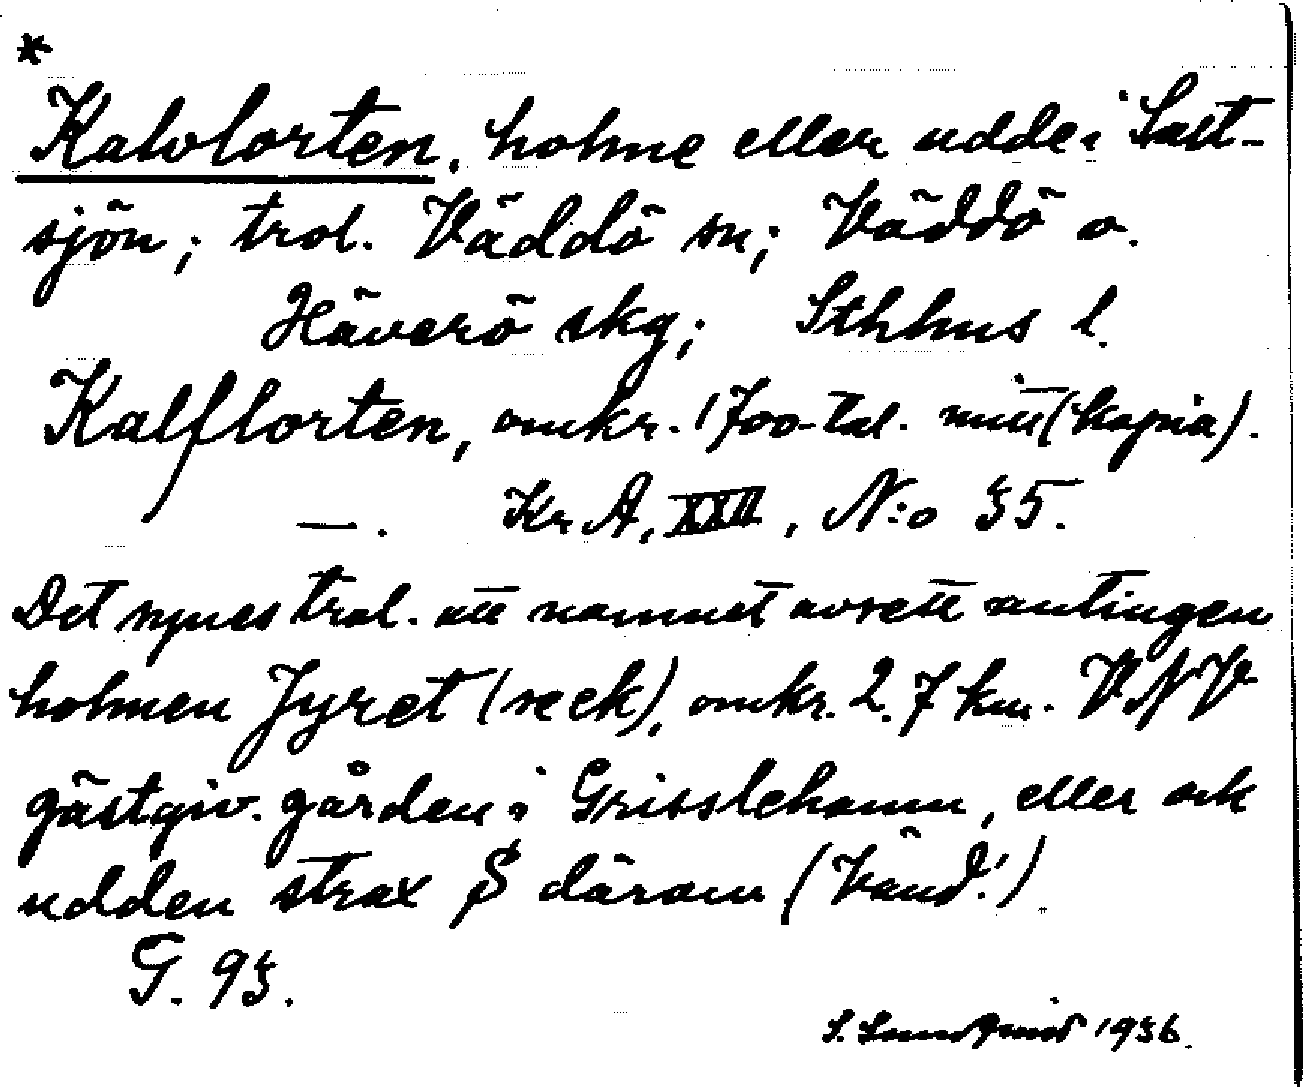 *
Kalvlorten, holme eller udde i Salt-
sjön; trol. Väddö sn; Väddö o.
Häverö skg; Sthlms l.
Kalflorten, omkr. 1700-tal. mitt (kopia).
—. Kr A, XXII, N:o 35.
Det synes trol. att namnet avsett antingen
holmen Fyret (seck), omkr. 2.7 km. VNV
gästgiv. gården i Grisslehamn, eller ock
udden strax S därom (Vänd!)
G. 93.
S. 1936.